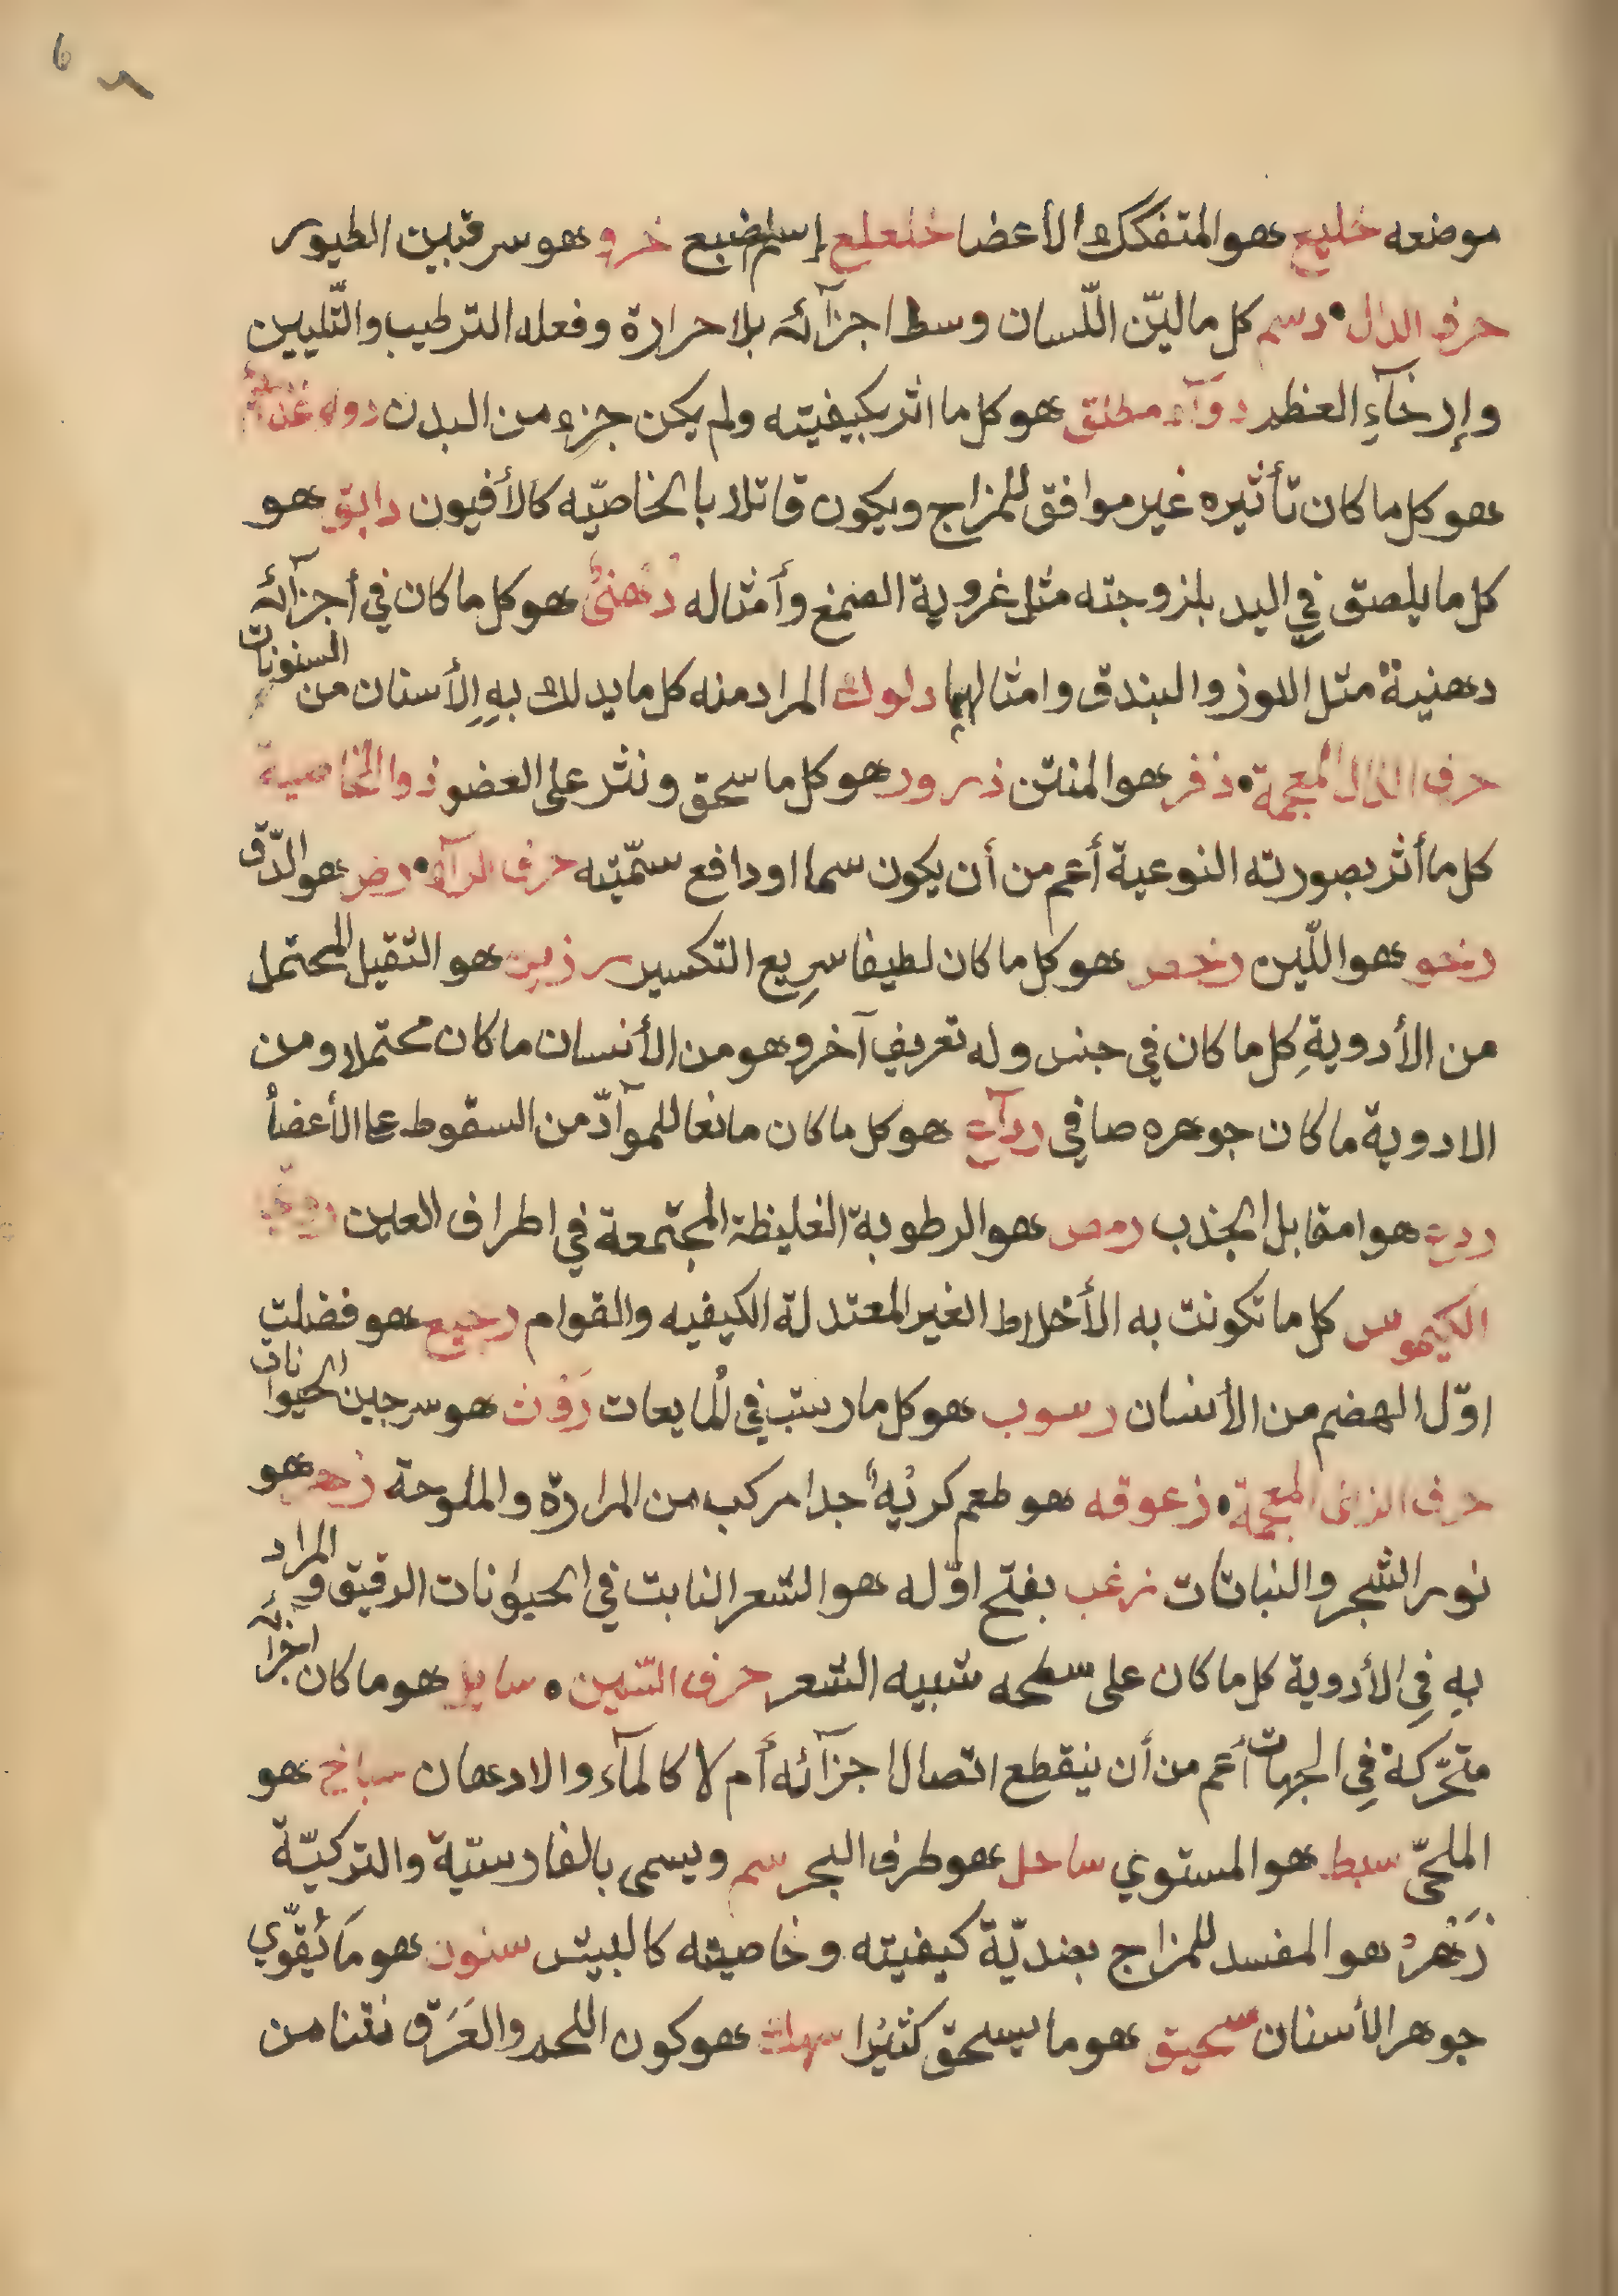 موضعه خليع هو المتفكك الأعضا خلعلع إسم الضبع خرو هو سرقين الطيور
حرف الدال • دسم كل ما ليّن اللّسان وسط اجزآئه بلا حرارة وفعله الترطيب والتّليين
وإرخآءِ العظم دوآء مطلق هو كل ما اثر بكيفيته ولم يكن جزء من البدن دواء
هو كل ما كان تأثيره غير موافق للمزاج ويكون قاتلا بالخاصّيه كالأفيون دابق هو
كل ما يلصق في اليد بلزوجته مثل غروية الصمغ وأمثاله دُهنيٌ هو كل ما كان في أجزآئه
دهنية مثل اللوز والبندق وامثالهما دلوك المراد منه كل ما يدلك بهِ الأسنان من السنونات
حرف الذال المعجمة • ذفر هو المنتن ذرور هو كل ما سحق ونثر على العضو ذو الخاصية
كل ما أثر بصورته النوعية أعم من أن يكون سما او دافع سمّيته حرف الرآء • رض هو الدّق
رخو هو اللّين رخص هو كل ما كان لطيفا سرِيع التكسير رزين هو الثقيل المحتمل
من الأدويةِ كل ما كان في جنس وله تعريف آخر وهو من الأنسان ما كان محتملا ومن
الادوية ما كان جوهره صافي ردآع هو كل ما كان مانعا للموآدّ من السقوط على الأعضأ
ردع هو امقابل الجذب رمص هو الرطوبة الغليظة المجتمعة في اطراف العين
الكيموس كل ما تكونت به الأخلاط الغير المعتدلة الكيفيه والقوام رجيع هو فضلت
اوّل الهضم من الأنسان رسوب هو كل ما رسب في المايعات رَوْث هو سرجين الحيوانات
حرف الزاى المعجمة • زعوقه هو طعم كريْهاً جدا مركب من المرارة والملوحة زهر هو
نور الشجر والنباتات زغب بفتح اوّله هو الشعر النابت في الحيوانات الرقيق والمراد
بهِ فِي الأدوية كل ما كان على سطحه شبيه الشعر حرف السّين • سايل هو ما كان اجزآئه
متحّركة فِي الجهات أعم من أن ينقطع اتصال اجزآئه أم لا كالمآء والادهان سباخ هو
الملحيّ سبط هو المستوي ساحل هو طرف البحر سم ويسمى بالفارسيّة والتركيّة
زَهْرْ هو المفسد للمزاج بضديّة كيفيته وخاصيته كالبيش سنون هو مَا يُقوّي
جوهر الأسنان سحيق هو ما يسحق كثيْرا سهك هو كون اللحم والعَرَق نتنا من